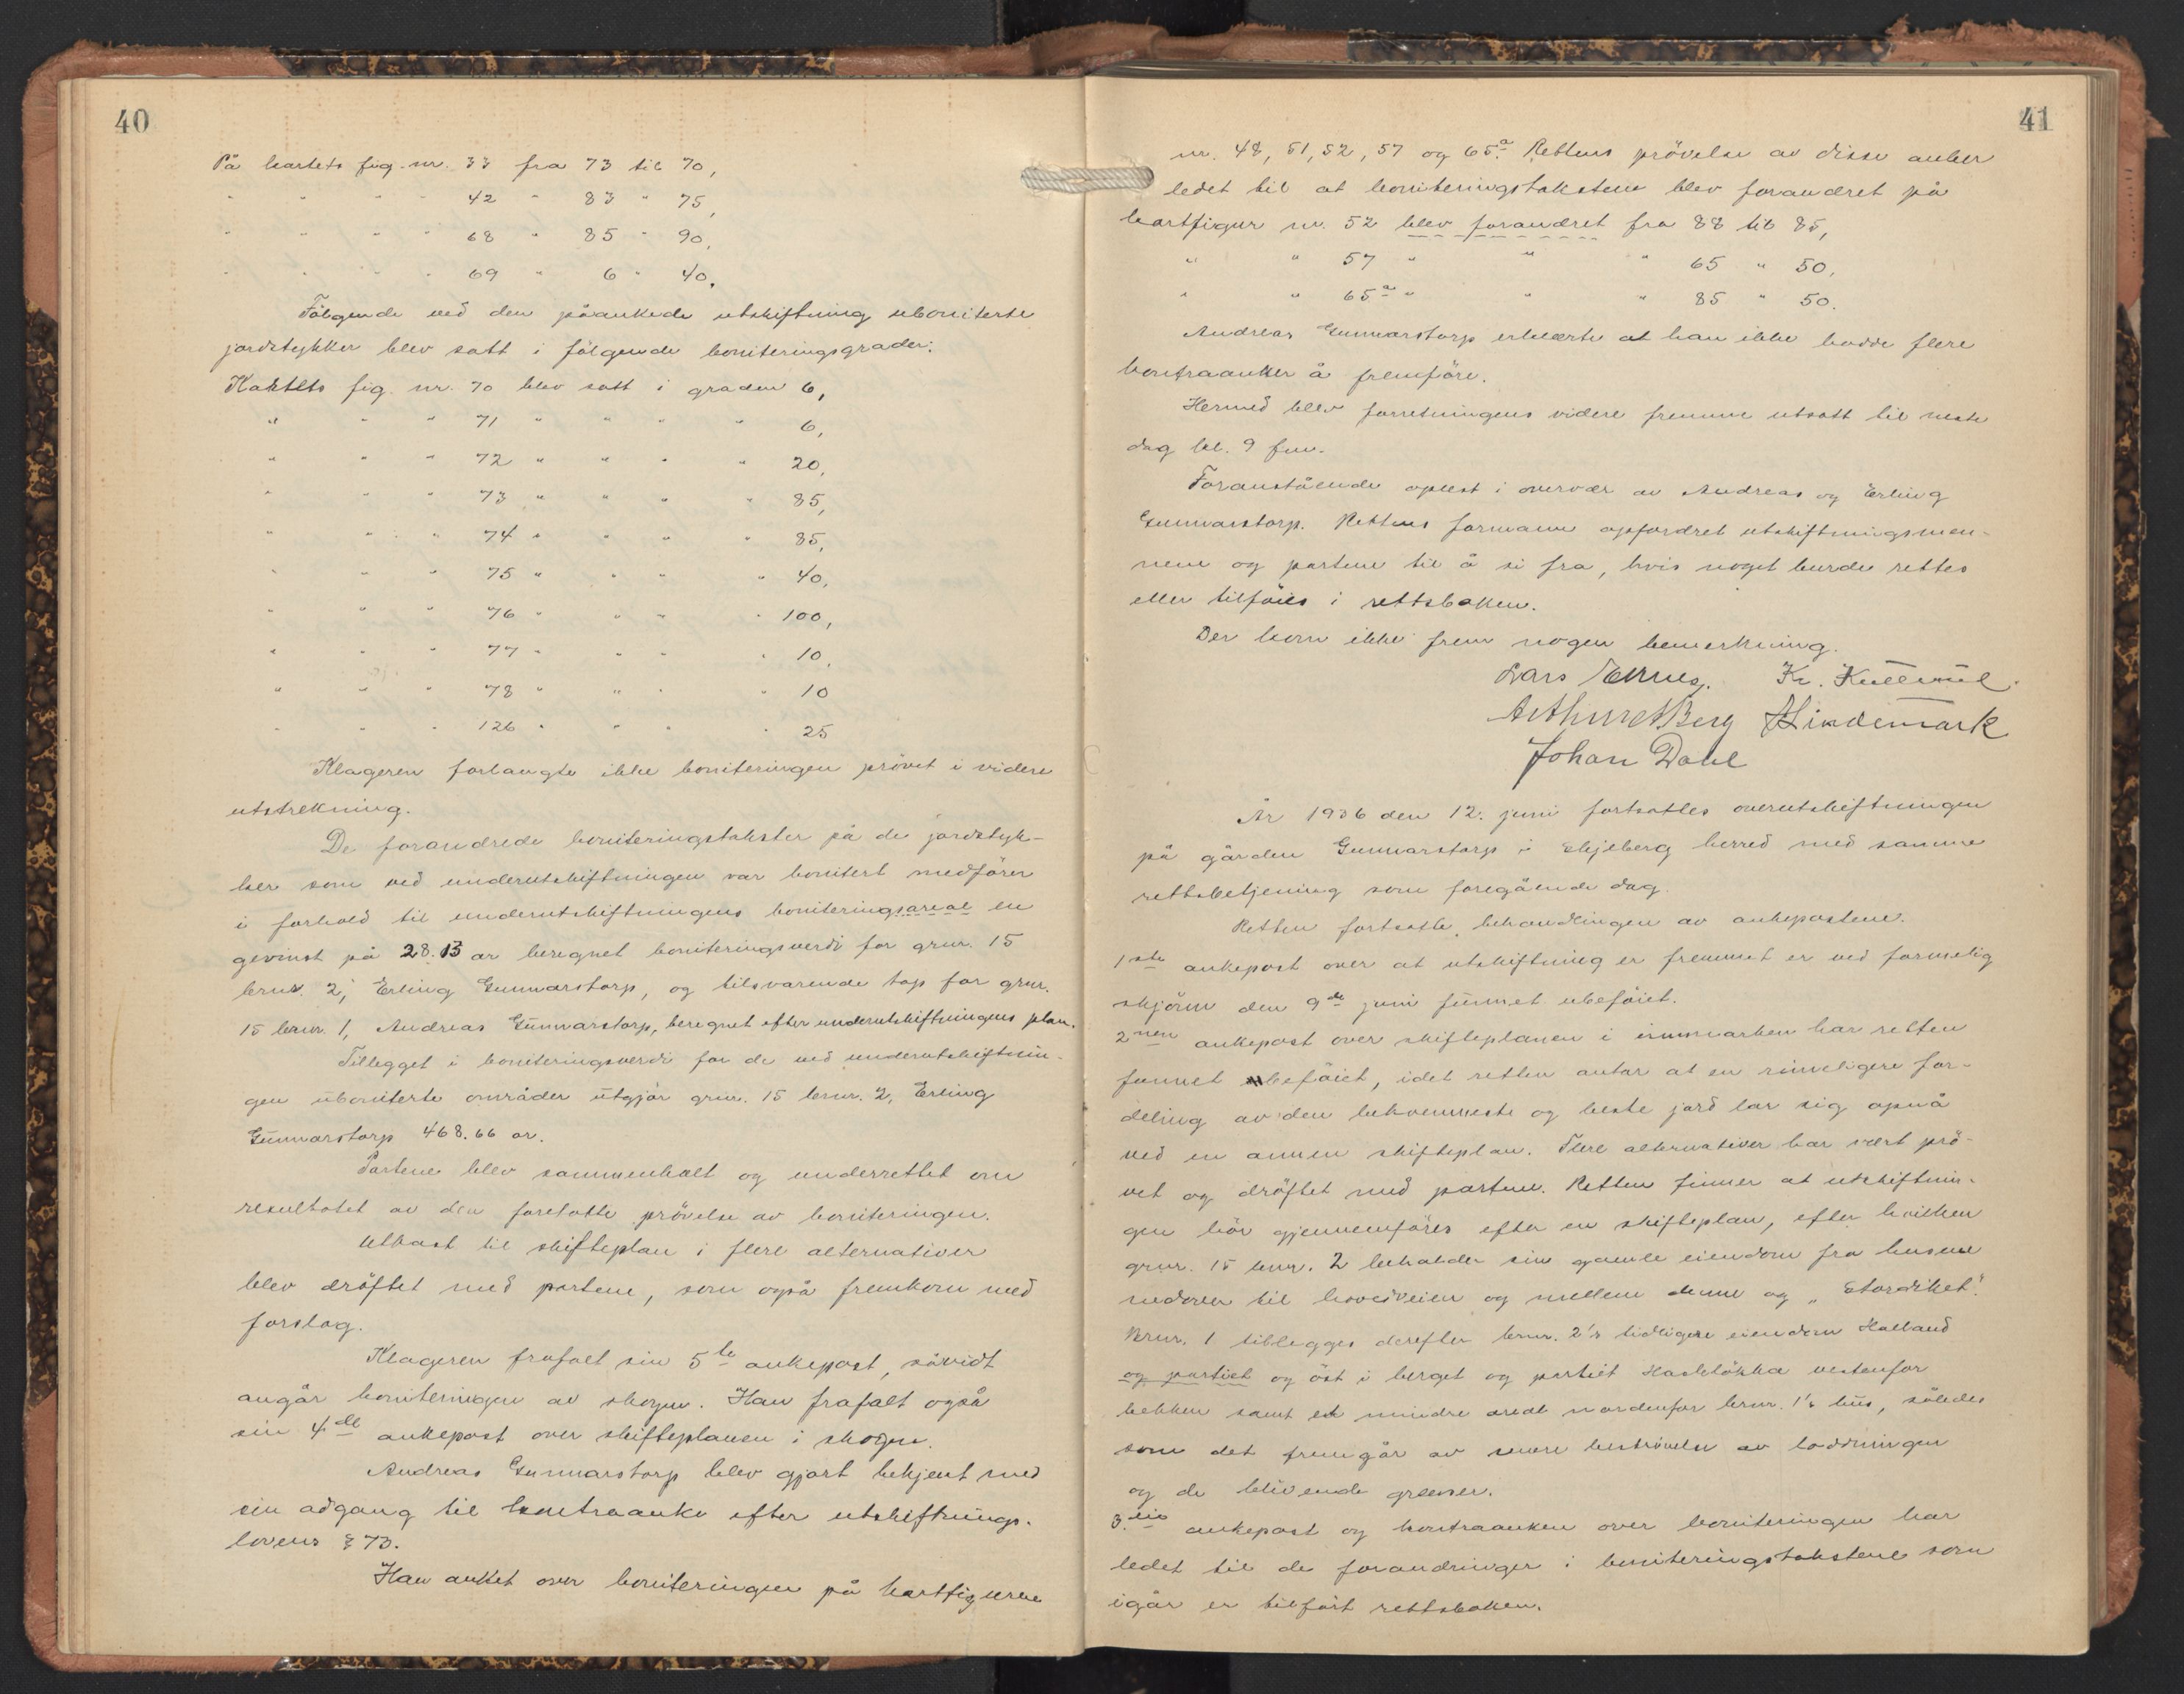 40
På kartets fig. nr. 33 fra 73 til 70,
" " " " 42 " 83 " 75,
" " " " 68 " 85 " 90,
" " " " 69 " 6 " 40.
Følgende ved den påankede utskiftning uboniterte
jordstykker blev satt i følgende boniteringsgrader:
Kartets fig. nr. 70 blev satt i graden 6,
" " " 71 " " " " 6,
" " " 72 " " " " 20,
" " " 73 " " " " 85,
" " " 74 " " " " 85,
" " " 75 " " " " 40,
" " " 76 " " " " 100,
" " " 77 " " " " 10,
" " " 78 " " " " 10
" " " 126 " " " " 25
Klageren forlangte ikke boniteringen prövet i videre
utstrekning.
De forandrede boniteringstakster på de jordstyk-
ker som ved underutskiftningen var bonitert medförer
i forhold til underutskiftningens boniteringsareal en
gevinst på 28.13 ar beregnet boniteringsverdi for grnr. 15
brnr. 2, Erling Gunnarstorp, og tilsvarende tap for grnr.
15 brnr. 1, Andreas Gunnarstorp, beregnet efter underutskiftningens plan.
Tillegget i boniteringsverdi for de ved underutskiftnin-
gen uboniterte områder utgjör grnr. 15 brnr. 2, Erling
Gunnarstorp 468.66 ar.
Partene blev sammenkalt og underrettet om
resultatet av den foretatte prövelse av boniteringen.
Utkast til skifteplan i flere alternativer
blev dröftet med partene, som også fremkom med
forslag.
Klageren frafalt sin 5te ankepost, såvidt
angår boniteringen av skogen. Han frafalt også
sin 4de ankepost over skifteplanen i skogen.
Andreas Gunnarstorp blev gjort bekjent med
sin adgang til kontraanke efter utskiftnings-
lovens § 73.
Han anket over boniteringen på kartfigurene
41
nr. 48, 51, 52, 57 og 65a. Rettens prövelse av disse anker
ledet til at boniteringstakstene blev forandret på
kartfigur nr. 52 blev forandret fra 88 til 85,
" " 57 " " " 65 " 50,
" " 65a " " " 85 " 50.
Andreas Gunnarstorp erklærte at han ikke hadde flere
kontraanker å fremföre.
Hermed blev forretningens videre fremme utsatt til neste
dag kl. 9 fm.
Foranstående oplest i overvær av Andreas og Erling
Gunnarstorp. Rettens formann opfordret utskiftningsmen-
nene og partene til å si fra, hvis noget burde rettes
eller tilföies i rettsboken.
Der kom ikke frem nogen bemerkning.
Lars Kr.
Arthur Berg Lindemark
Johan Dahl
År 1936 den 12. juni fortsattes overutskiftningen
på gården Gunnarstorp i Skjeberg herred med samme
rettsbetjening som foregående dag.
Retten fortsatte behandlingen av ankepostene.
1ste ankepost over at utskiftning er fremmet er ved formelig
skjönn den 9de juni funnet ubeföiet.
2nen ankepost over skifteplanen i innmarken har retten
funnet beföiet, idet retten antar at en rimeligere for-
deling av den bekvemmeste og beste jord lar sig opnå
ved en annen skifteplan. Flere alternativer har vært prö-
vet og dröftet med partene. Retten finner at utskiftnin-
gen bör gjennemföres efter en skifteplan, efter hvilken
grnr. 15 brnr. 2 beholder sin gamle eiendom fra husene
nedover til hovedveien og mellem denne og „Stordiket".
Brnr. 1 tillegges derefter brnr. 2's tidligere eiendom Halland
og partiet og öst i berget og partiet Haslelökka vestenfor
bekken samt et mindre areal nordenfor brnr. 1's hus, således
som det fremgår av senere beskrivelse av loddningen
og de blivende grenser.
3.die ankepost og kontraanken over boniteringen har
ledet til de forandringer i boniteringstakstene som
igår er tilfört rettsboken.